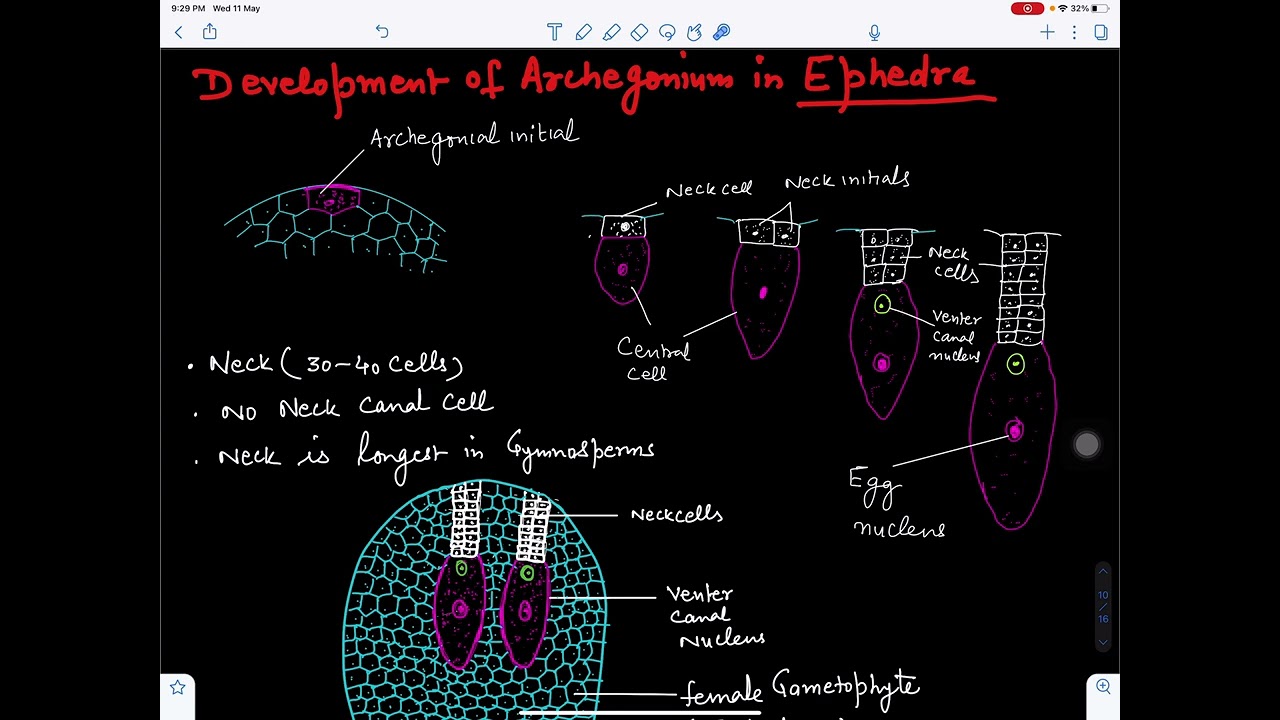 9:29 PM Wed 11 May
32%
T
Development of Archegonium in Ephedra
Archegonial initial
Neck cell
Neck initials
Neck
cells
Venter
canal
nucleus
Central
cell
• Neck (30-40 cells)
. NO Neck canal cell
. Neck is longest in Gymnosperms
Egg
nucleus
Neckcells
Venter
canal
Nucleus
female Gametophyte
10
/
16